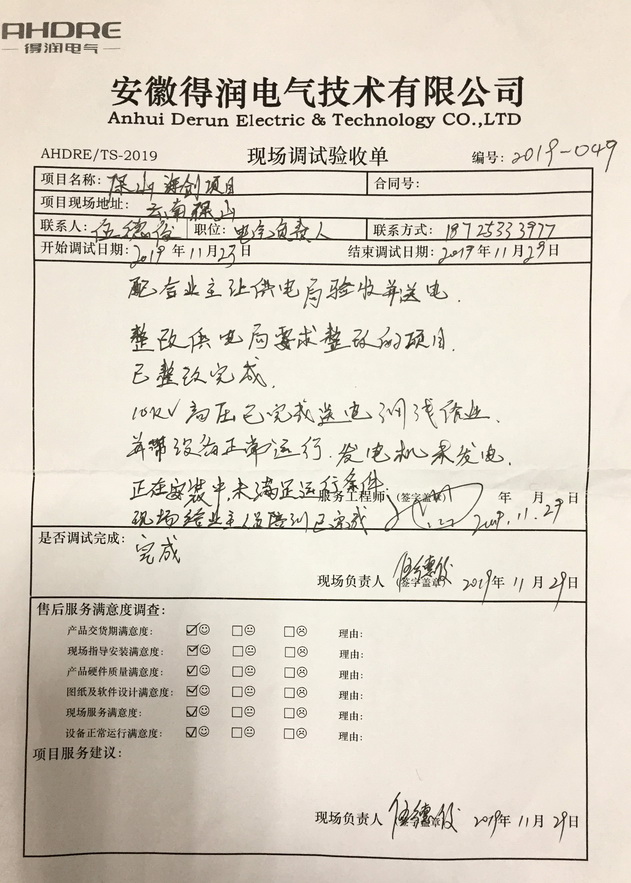 AHDRE
得润电气
安徽得润电气技术有限公司
Anhui Derun Electric & Technology CO.,LTD
AHDRE/TS-2019 现场调试验收单 编号: 2019-049
项目名称: 保山海创项目 合同号:
项目现场地址: 云南保山
联系人: 伍德俊 职位: 电气负责人 联系方式: 18725333977
开始调试日期: 2019 年 11 月 23 日 结束调试日期: 2019 年 11 月 29 日
配合业主让供电局验收并送电.
整改供电局要求整改的项目.
已整改完成.
10KV 高压已完成送电调线作业.
并带设备正常运行.发电机未发电.
正在安装中,未满足运行条件.
服务工程师 (签字盖章) 年 月 日
现场给业主人员培训已完成 2019.11.29
是否调试完成:
完成
现场负责人 (签字盖章) 伍德俊 2019 年 11 月 29 日
售后服务满意度调查:
产品交货期满意度: 理由:
现场指导安装满意度: 理由:
产品硬件质量满意度: 理由:
图纸及软件设计满意度: 理由:
现场服务满意度: 理由:
设备正常运行满意度: 理由:
项目服务建议:
现场负责人 (签字盖章) 伍德俊 2019 年 11 月 29 日